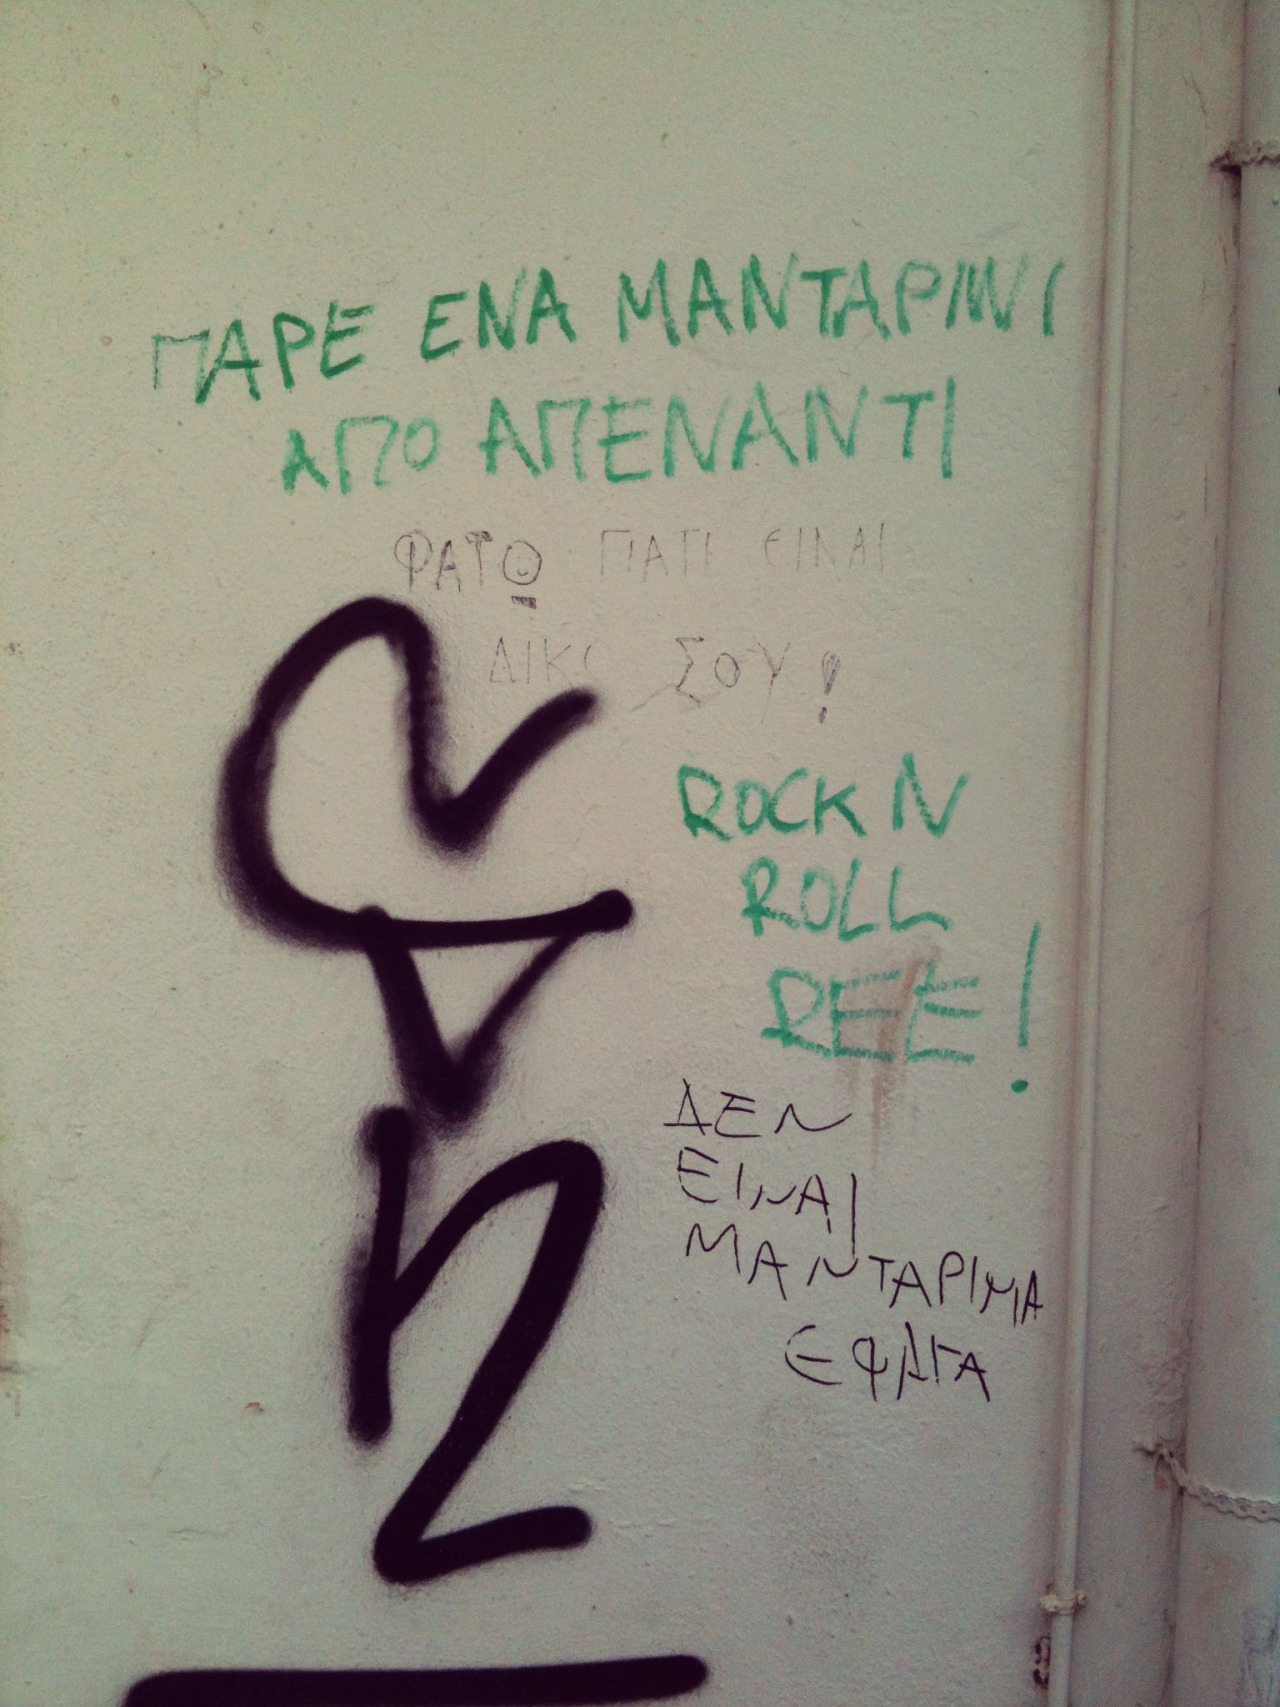 ΠΑΡΕ ΕΝΑ ΜΑΝΤΑΡΙΝΙ
ΑΠΟ ΑΠΕΝΑΝΤΙ
ΦΑΤΟ ΓΙΑΤΙ ΕΙΝΑΙ
ΔΙΚΟ ΣΟΥ!
ROCK N
ROLL
ΡΕΕ!
ΔΕΝ
ΕΙΝΑΙ
ΜΑΝΤΑΡΙΝΑ
ΕΦΑΓΑ